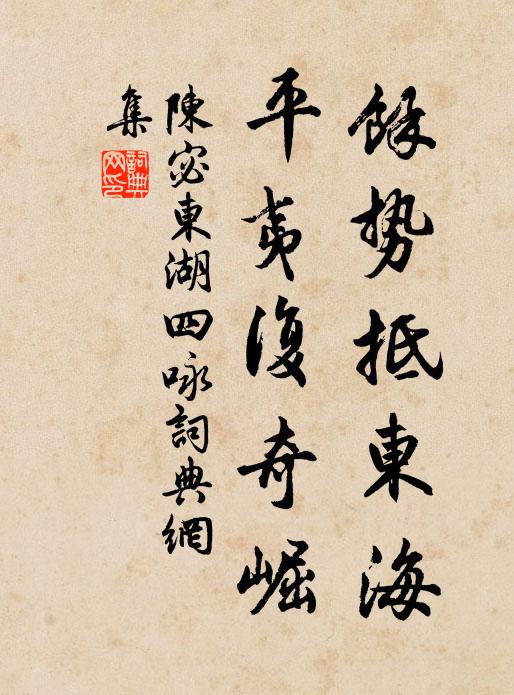 餘勢抵東海
平夷復奇崛
陳宓東湖四咏詞典網
集
詞典网印